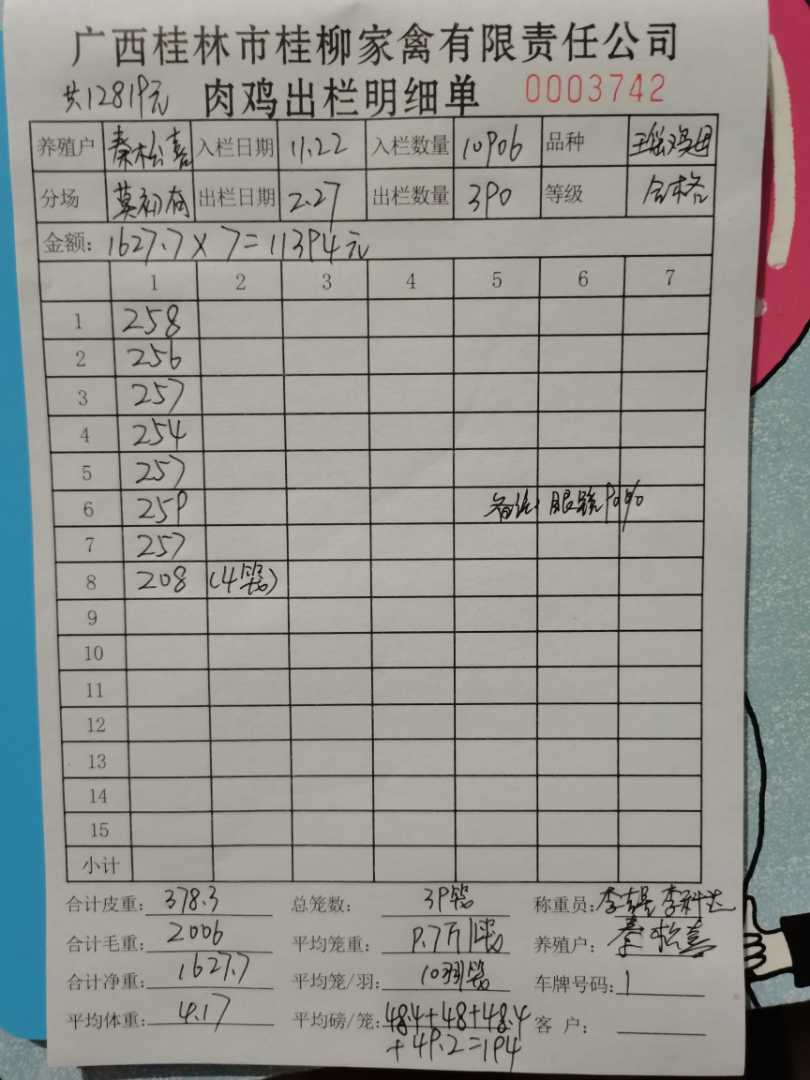 广西桂林市桂柳家禽有限责任公司
共12819元 肉鸡出栏明细单 0003742
养殖户 秦松喜 入栏日期 11.22 入栏数量 10906 品种 瑶鸡母
分场 莫初有 出栏日期 2.27 出栏数量 390 等级 合格
金额: 1627.7×7=11394元
1 2 3 4 5 6 7
1 258
2 256
3 257
4 254
5 257
6 259 备注: 眼 90%
7 257
8 208 (4笼)
9
10
11
12
13
14
15
小计
合计皮重: 378.3 总笼数: 39笼 称重员: 李
合计毛重: 2006 平均笼重: 9.7斤/笼 养殖户: 秦松喜
合计净重: 1627.7 平均笼/羽: 10羽/笼 车牌号码:
平均体重: 4.17 平均磅/笼: 48.4+48+48.4 客 户:
+49.2=194